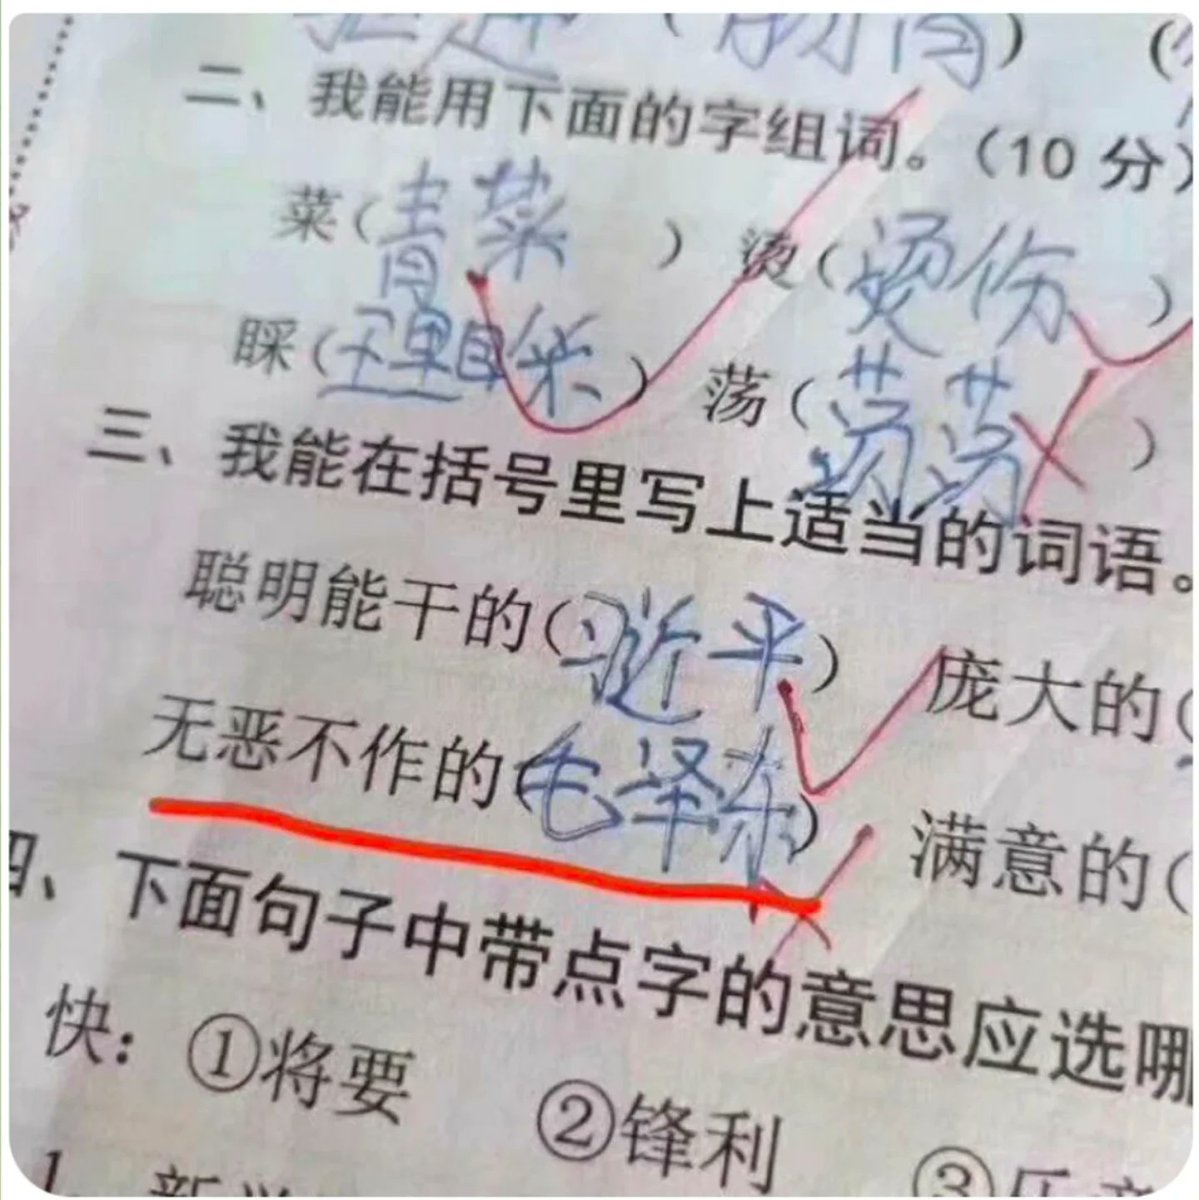 二、我能用下面的字组词。（10 分）
菜（青菜） 烫（烫伤）
睬（理睬） 荡（荡荡）
三、我能在括号里写上适当的词语。
聪明能干的（习近平） 庞大的（
无恶不作的（毛泽东） 满意的（
四、下面句子中带点字的意思应选哪
快：①将要 ②锋利 ③
1.